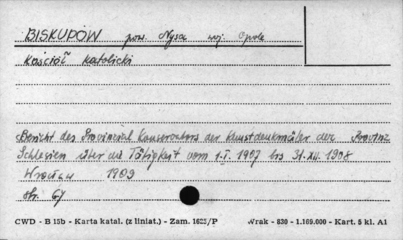 BISKUPÓW pow. Nysa woj. Opole
Kościół katolicki
Bericht des Provinzial Konservators der Kunstdenkmäler der Provinz
Schlesien über die Tätigkeit vom 1.I. 1907 bis 31.XII. 1908
Wrocław 1909
str. 67
CWD - B 15b - Karta katal. (z liniat.) - Zam. 1623/P Wrak - 830 - 1.109.000 - Kart. 5 kl. A1